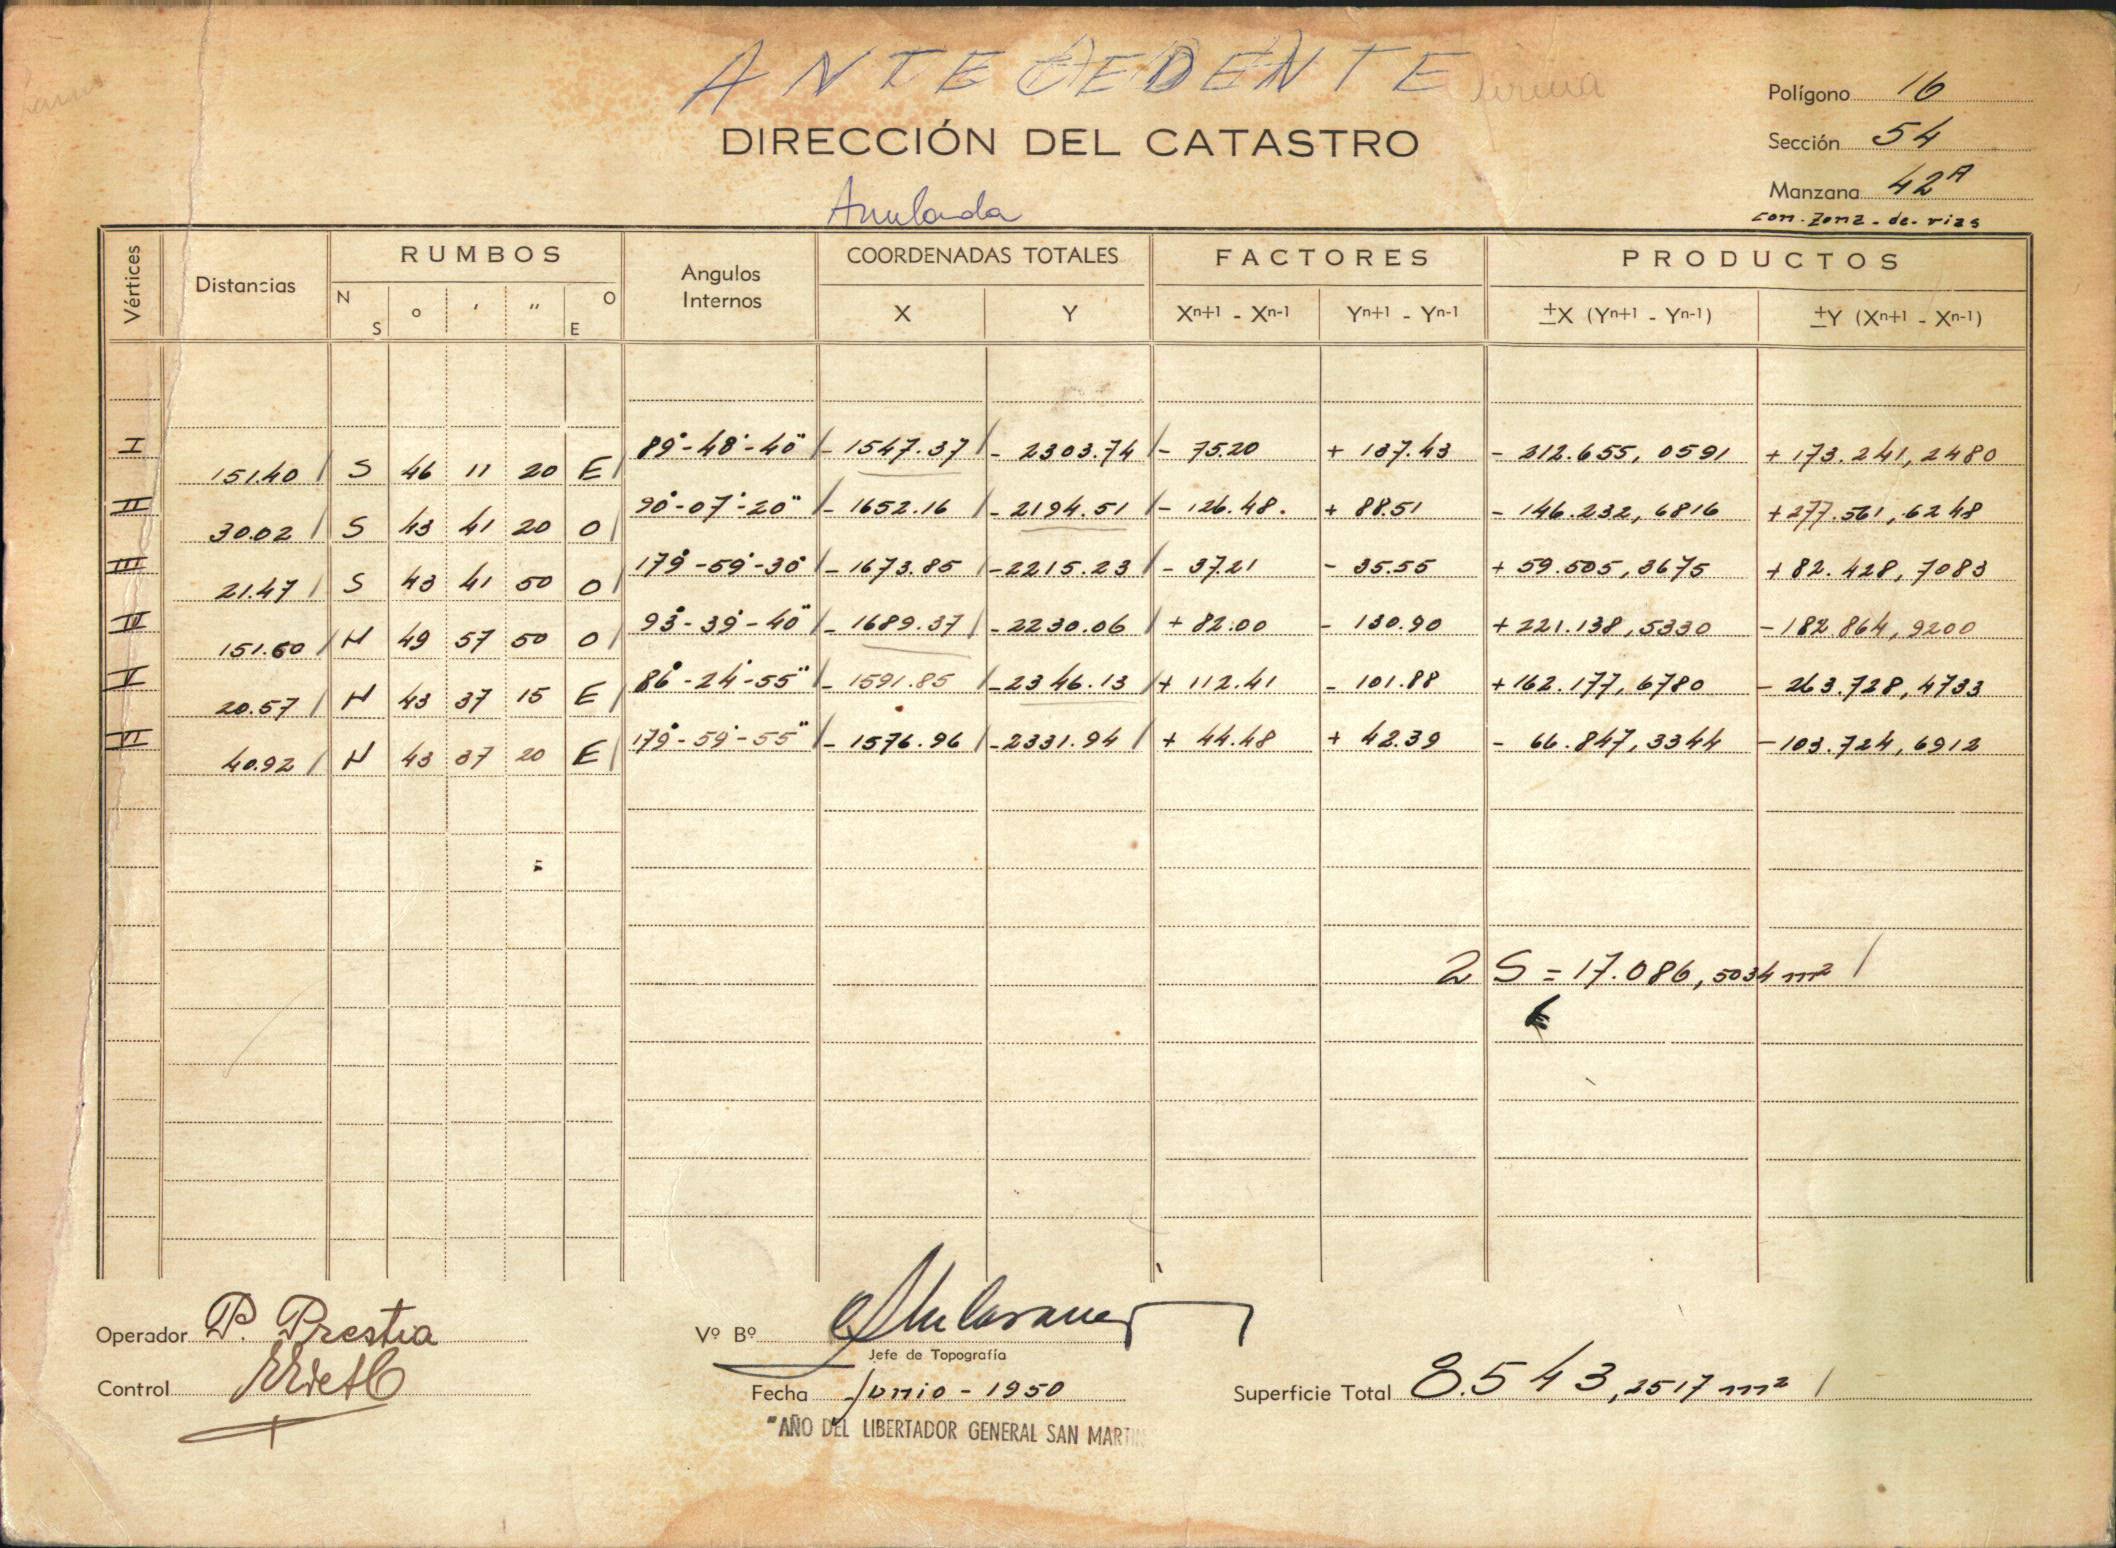 ANTECEDENTE
DIRECCIÓN DEL CATASTRO
Anulada
Polígono 16
Sección 54
Manzana 42A
con-zona-de-vias
Vértices Distancias RUMBOS Angulos Internos COORDENADAS TOTALES FACTORES PRODUCTOS
N S ° ' " O E X Y Xn+1 - Xn-1 Yn+1 - Yn-1 ±X (Yn+1 - Yn-1) ±Y (Xn+1 - Xn-1)
I 89°-48'-40" - 1547.37 - 2303.74 - 75.20 + 137.43 - 212.655,0591 + 173.241,2480
151.40 S 46 11 20 E
II 90°-07'-20" - 1652.16 - 2194.51 - 126.48. + 88.51 - 146.232,6816 + 277.561,6248
30.02 S 43 41 20 O
III 179°-59'-30" - 1673.85 - 2215.23 - 37.21 - 35.55 + 59.505,3675 + 82.428,7083
21.47 S 43 41 50 O
IV 93°-39'-40" - 1689.37 - 2230.06 + 82.00 - 130.90 + 221.138,5330 - 182.864,9200
151.60 N 49 57 50 O
V 86°-24'-55" - 1591.85 - 2346.13 + 112.41 - 101.88 + 162.177,6780 - 263.728,4733
20.57 N 43 37 15 E
VI 179°-59'-55" - 1576.96 - 2331.94 + 44.48 + 42.39 - 66.847,3344 - 103.724,6912
40.92 N 43 37 20 E
2 S = 17.086,5034 m²
Operador P. Prestia
Control
Vº Bº
Jefe de Topografía
Fecha Junio - 1950
Superficie Total 8.543,2517 m²
"AÑO DEL LIBERTADOR GENERAL SAN MARTIN